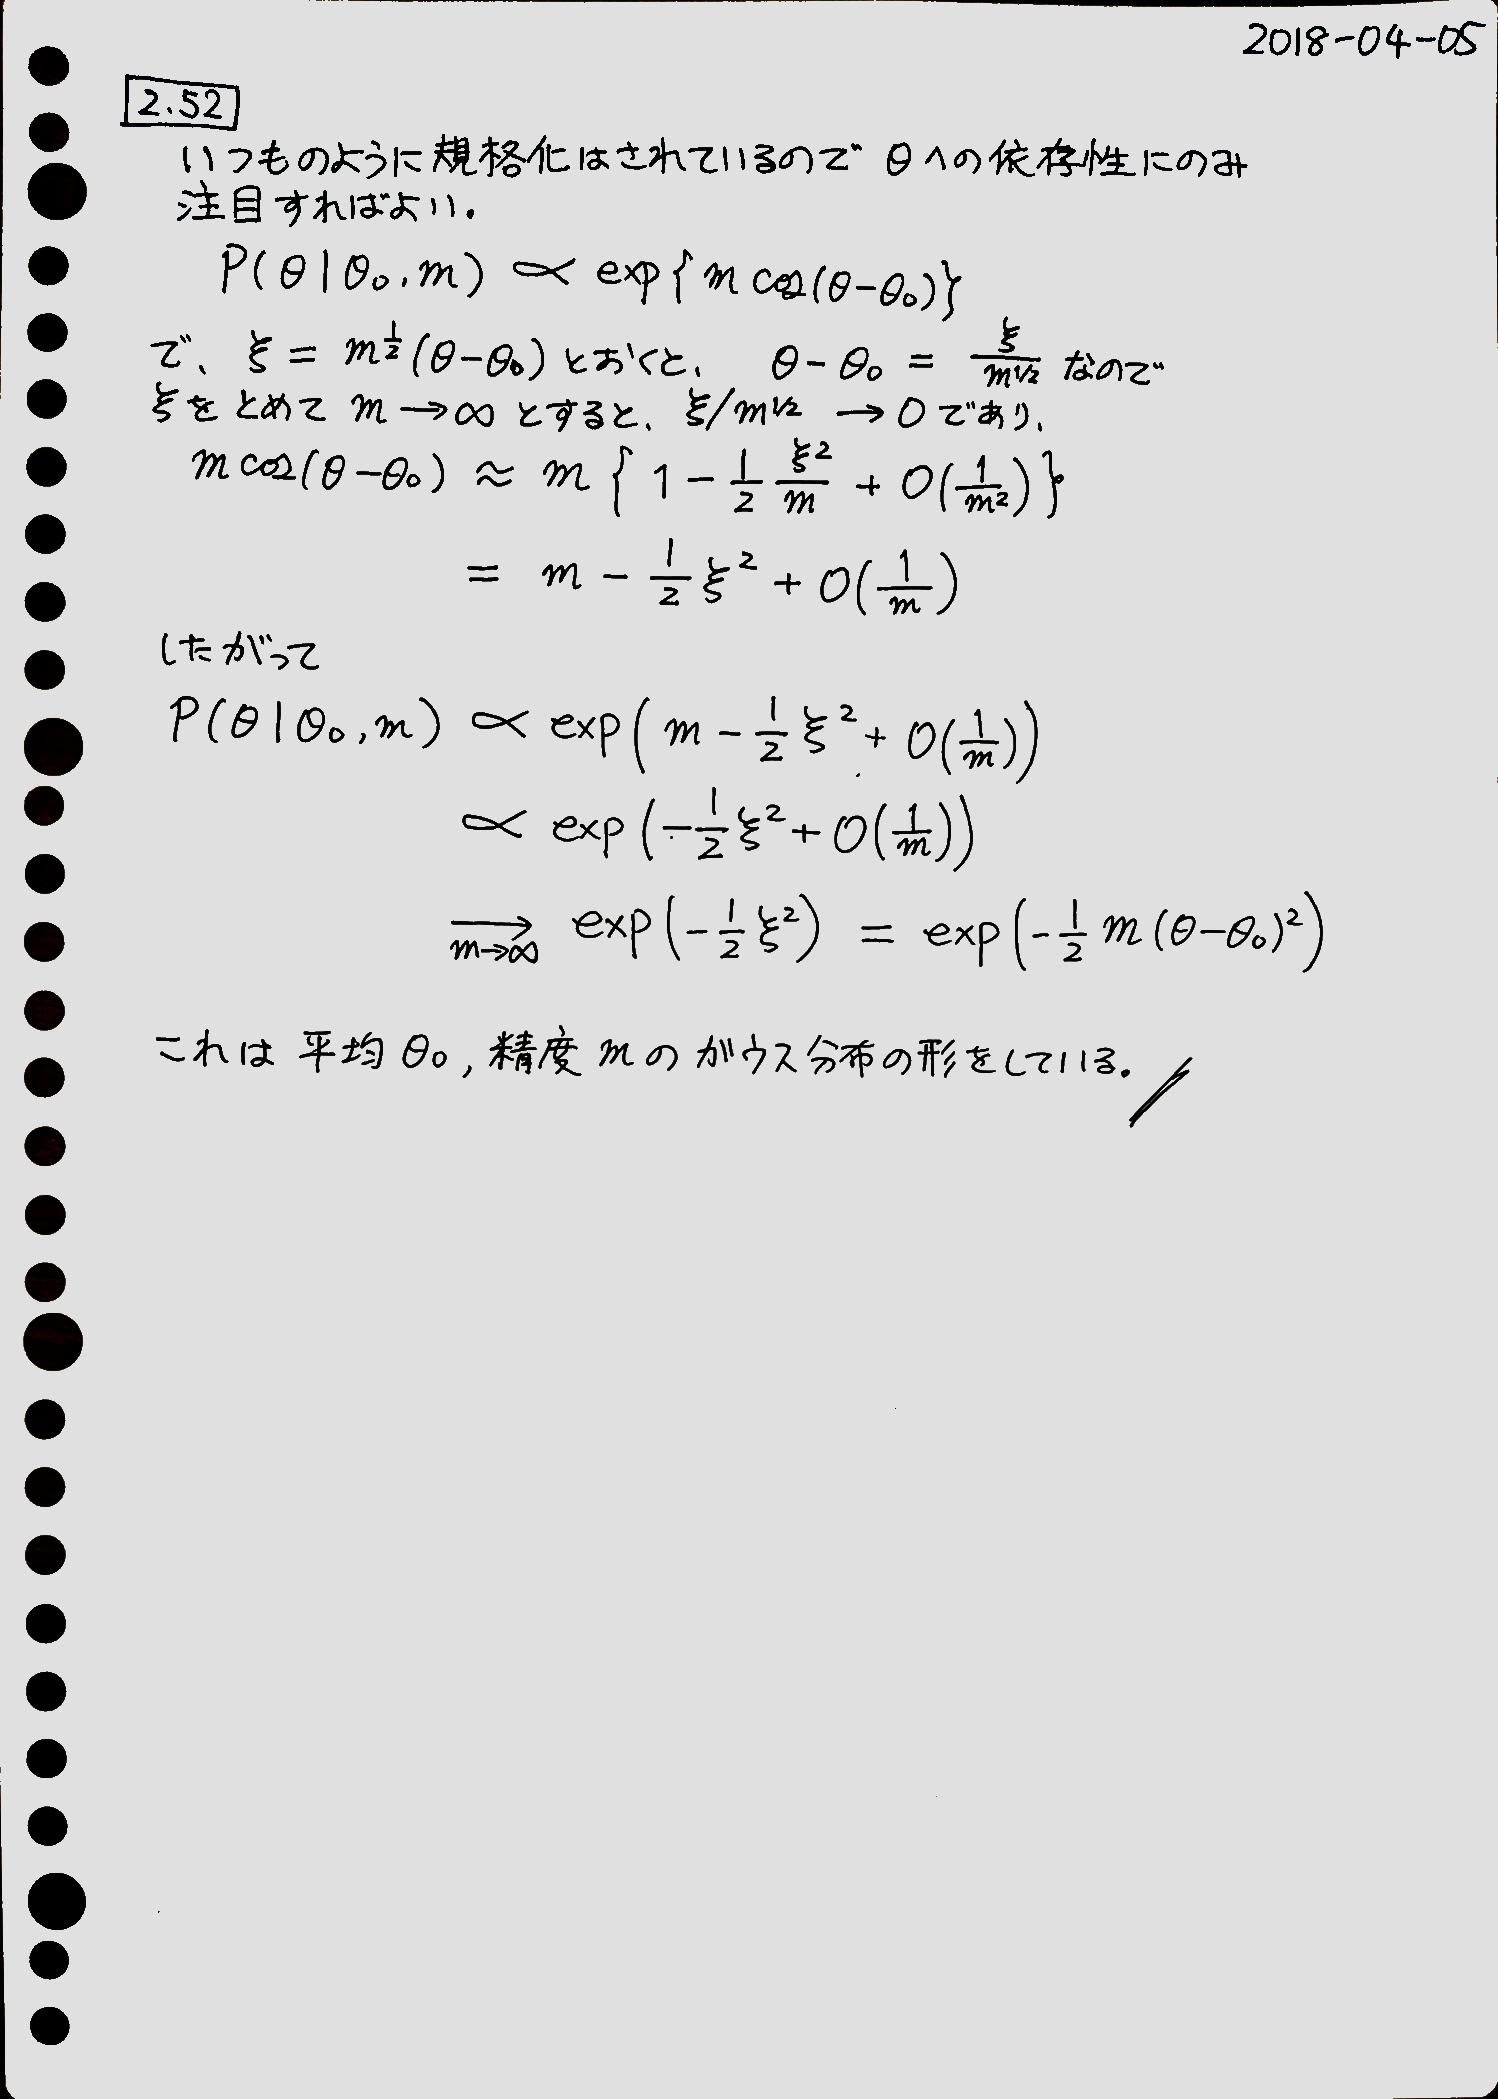 2018-04-05
2.52
いつものように規格化はされているので θへの依存性にのみ
注目すればよい.
P(θ|θ₀,m) ∝ exp{m cos(θ-θ₀)}
で、ξ = m^{1/2}(θ-θ₀) とおくと、 θ-θ₀ = ξ/m^{1/2} なので
ξをとめて m→∞ とすると、ξ/m^{1/2} → 0 であり、
m cos(θ-θ₀) ≈ m { 1 - 1/2 ξ²/m + O(1/m²) }
= m - 1/2 ξ² + O(1/m)
したがって
P(θ|θ₀,m) ∝ exp( m - 1/2 ξ² + O(1/m))
∝ exp(-1/2 ξ² + O(1/m))
→ m→∞ exp(-1/2 ξ²) = exp(-1/2 m(θ-θ₀)²)
これは 平均 θ₀, 精度 m の ガウス分布の形をしている.